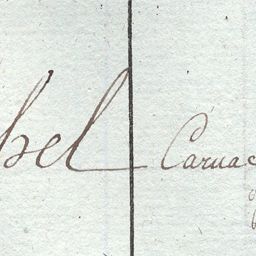 bel Carnac